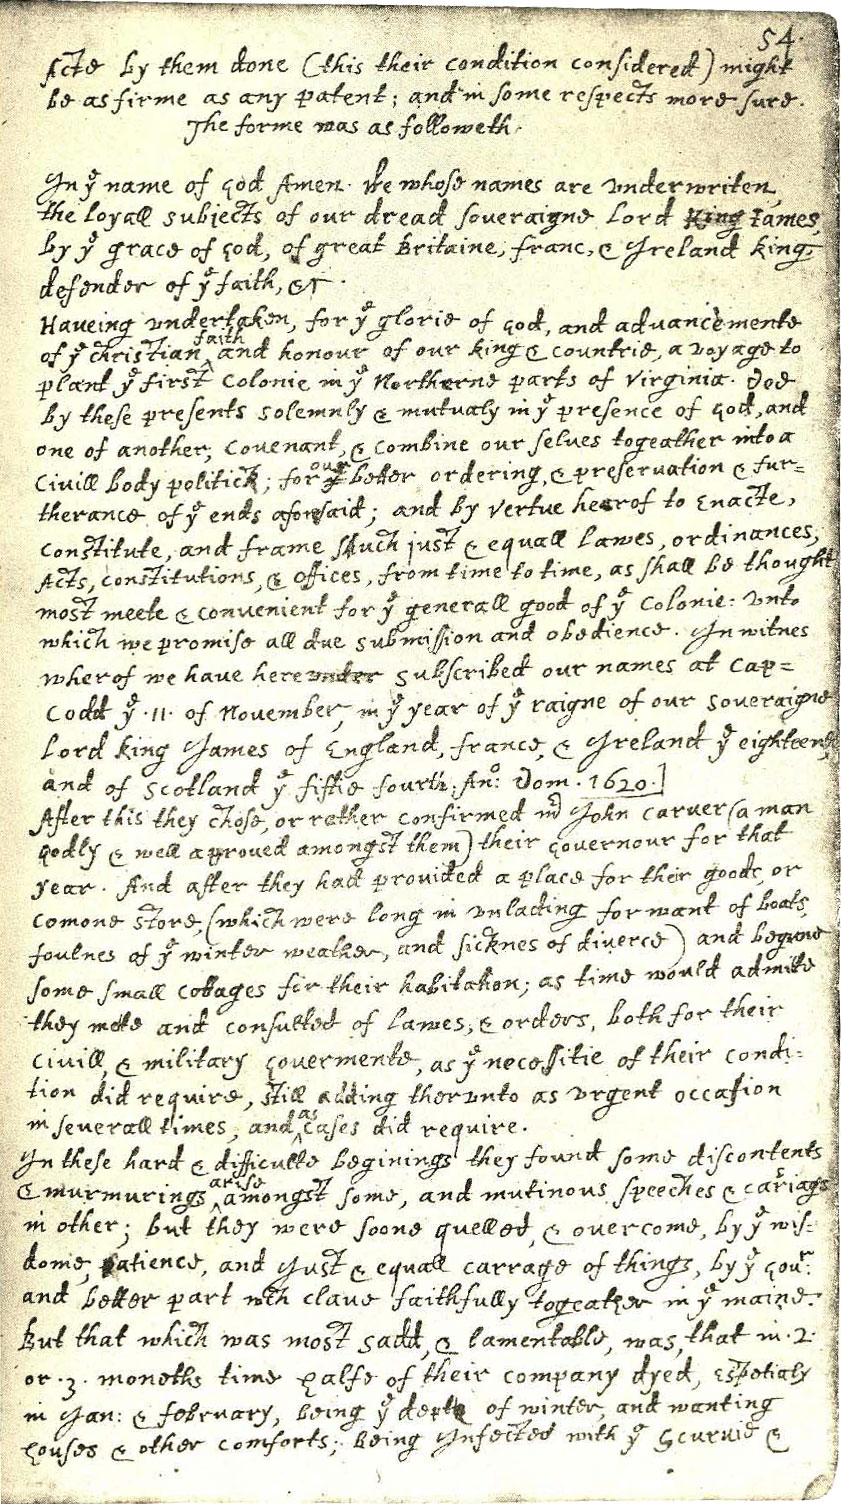 54.
Acte by them done (this their condition considered) might
be as firme as any patent; and in some respects more sure.
The forme was as followeth.
In yͤ name of god Amen. We whose names are vnderwriten,
the loyall subjects of our dread soveraigne Lord King Iames,
by yͤ grace of god, of great Britaine, franc, & Ireland king,
defender of yͤ faith, &c.
Haveing vndertaken, for yͤ glorie of god, and advancemente
of yͤ christian faith and honour of our king & countrie, a voyage to
plant yͤ first colonie in yͤ Northerne parts of Virginia. Doe
by these presents solemnly & mutualy in yͤ presence of god, and
one of another; covenant, & combine our selves togeather into a
Civill body politick; for our better ordering, & preservation & fur=
therance of yͤ ends aforesaid; and by vertue hearof to Enacte,
constitute, and frame shuch just & equall lawes, ordinances,
Acts, constitutions, & offices, from time to time, as shall be thought
most meete & convenient for yͤ generall good of yͤ Colonie: vnto
which we promise all due submission and obedience. In witnes
wherof we have herevnder subscribed our names at Cap=
Codd yͤ .11. of November, in yͤ year of yͤ raigne of our soveraigne
Lord king James of England, france, & Ireland yͤ eighteenth
and of Scotland yͤ fiftie fourth. Anͦ: Dom. 1620.]
After this they chose, or rather confirmed mʳ John carver (a man
godly & well aproved amongst them) their governour for that
year. And after they had provided a place for their goods, or
comone store, (which were long in vnlading for want of boats,
foulnes of yͤ winter weather, and sicknes of diverce) and begune
some small cottages for their habitation; as time would admitte
they mete and consulted of lawes, & orders, both for their
civill, & military govermente, as yͤ necessitie of their condi=
tion did require, still adding thervnto as vrgent occasion
in severall times, and as cases did require.
In these hard & difficulte beginings they found some discontents
& murmurings arise amongst some, and mutinous speeches & cariags
in other; but they were soone quelled, & overcome, by yͤ wis=
dome, patience, and just & equall carrage of things, by yͤ Govʳ:
and better part wch clave faithfully togeather in yͤ maine.
But that which was most sadd, & lamentable, was, that in .2.
or .3. moneths time halfe of their company dyed, espetialy
in Jan: & february, being yͤ depth of winter, and wanting
houses & other comforts; being Infected with yͤ Scurvie &